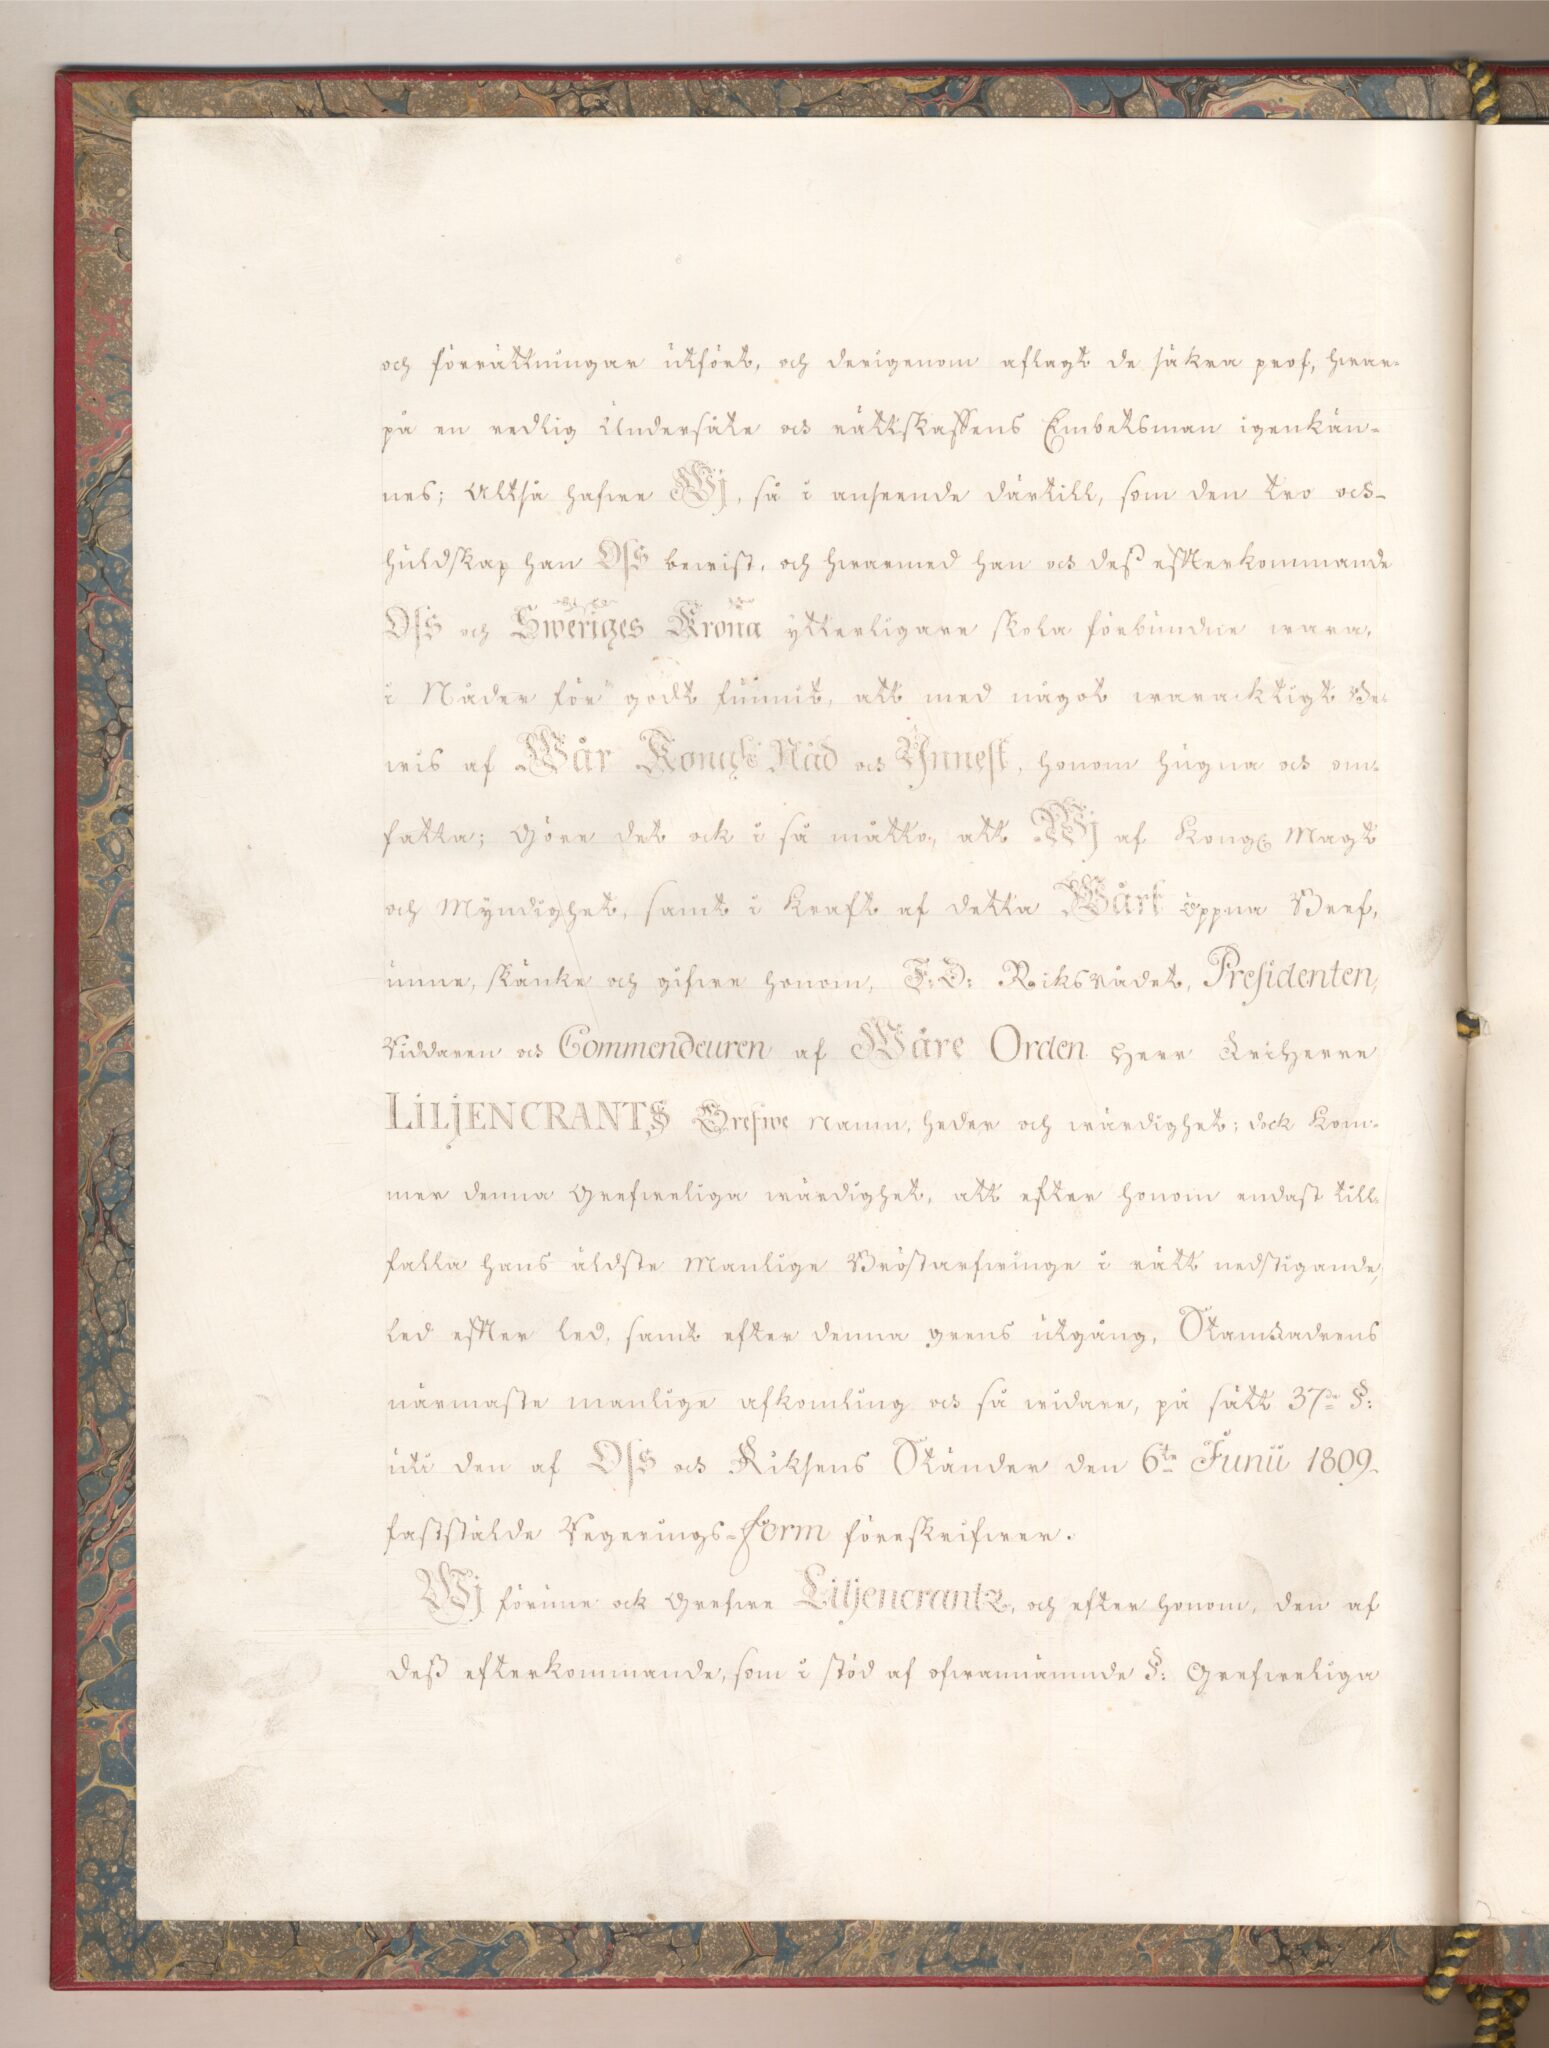 och förrättningar utfört, och derigenom aflagt de säkra prof, hwar-
på en redlig Undersåte och rättskaffens Embetsman igenkän-
nes; Altså hafwe Wj, så i anseende därtill, som den tro och
huldskap han Oss bewist, och hwarmed han och dess efterkommande
Oss och Sweriges Krona ytterligare skola förbundne wara,
i Nåder för godt funnit, att med något waracktigt Be-
wis af Wår Kongl. Nåd och Ynnest, honom hugna och om-
fatta; Göre det ock i så måtto, att Wj af Kongl. Magt
och Myndighet, samt i kraft af detta Wårt öppna Bref,
unne, skänke och gifwe honom, F:D: Riksrådet, Presidenten,
Riddaren och Commendeuren af Wåre Orden Herr FriHerre
LILJENCRANTS Grefwe Namn, heder och wärdighet; dock kom-
mer denna Grefweliga wärdighet, att efter honom endast till-
falla hans äldste Manlige Bröstarfwinge i rätt nedstigande
led efter led, samt efter denna grens utgång, Stamfadrens
närmaste manlige afkomling och så widare, på sätt 37de §:
uti den af Oss och Riksens Ständer den 6te Junii 1809
fastställde Regerings-form föreskrifwer.
Wj förunne ock Grefwe Liljencrants, och efter honom, den af
dess efterkommande, som i stöd af ofwannämnde §: Grefweliga